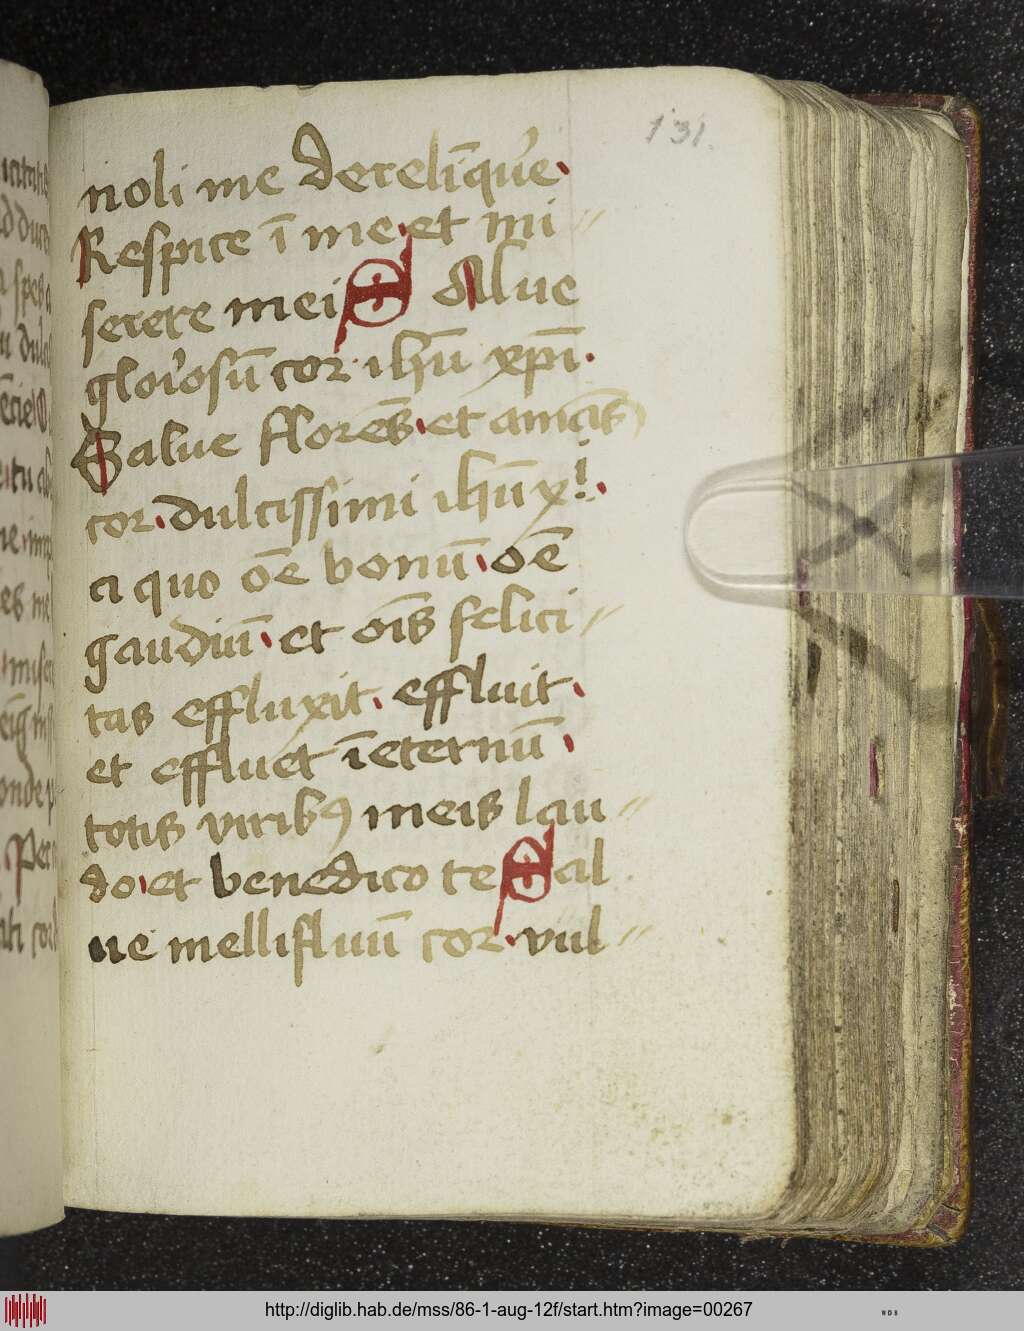 131.
noli me derelīqūe.
Respice ī me. et mi
serere mei S Alue
gloriosū cor ihū xp̄i.
Salue florēs. et amās
cor. dulcissimi ihū xi.
a quo oē̄ bonū. oē
gaudiū. et oīs felici
tas effluxit. effluit.
et effluet īeternū.
totis viribꝯ meis lau
do. et benedico te Sal
ue mellifluū cor. vul
http://diglib.hab.de/mss/86-1-aug-12f/start.htm?image=00267